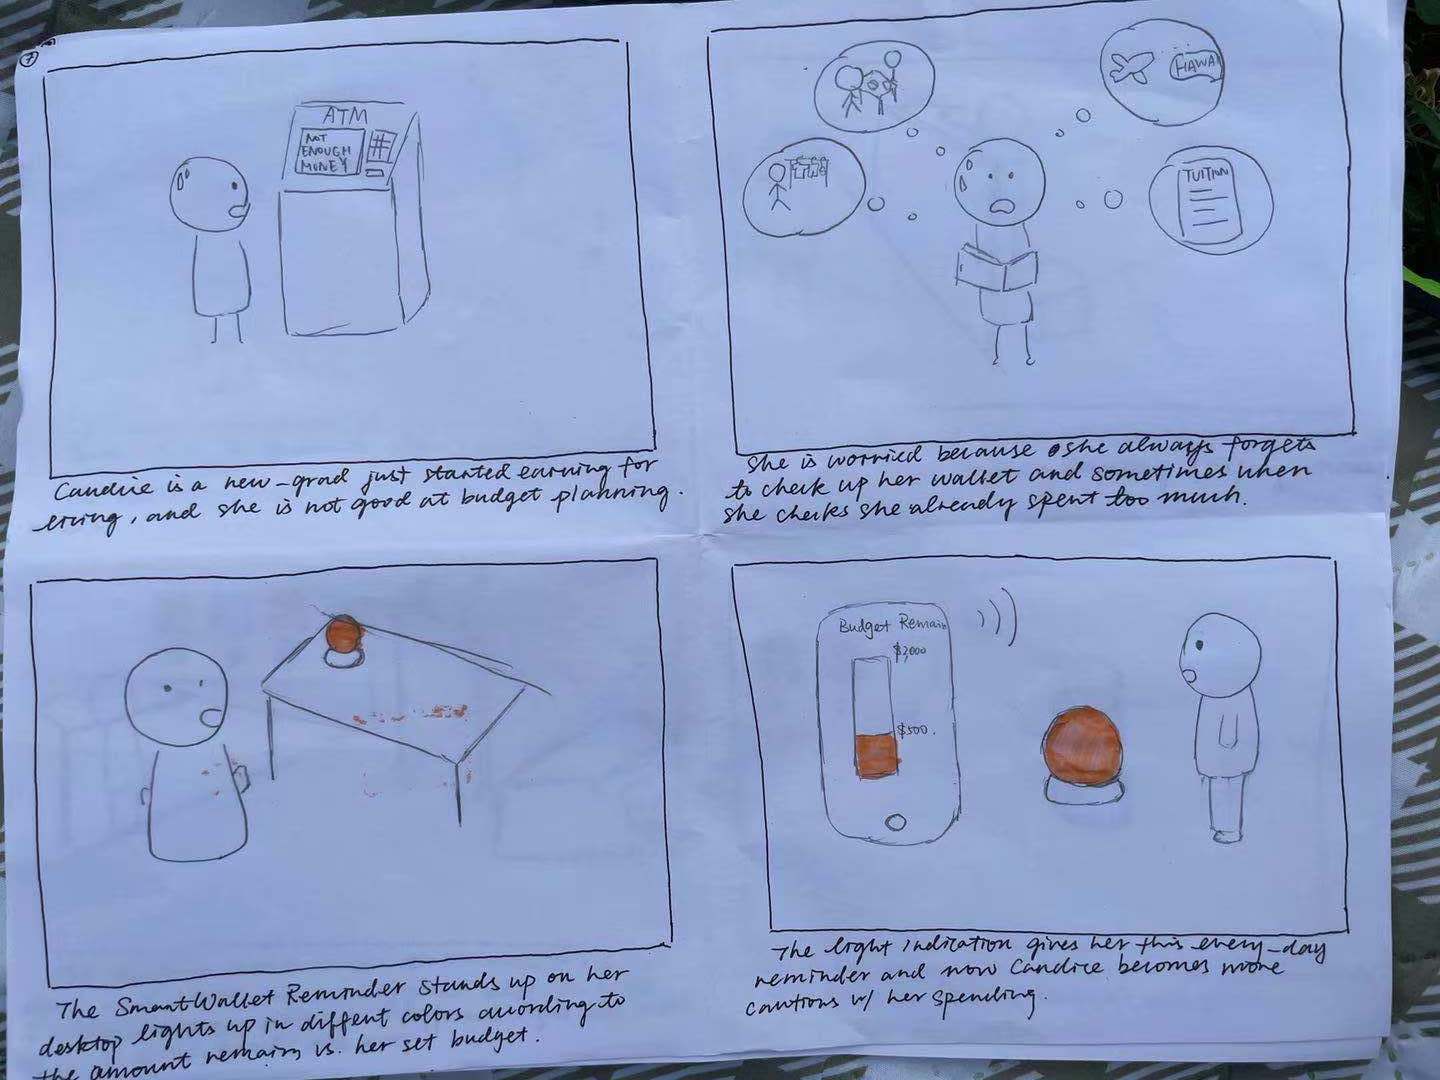 7
ATM
NOT
ENOUGH
MONEY
Candice is a new-grad just started earning for
living, and she is not good at budget planning.
HAWAI
TUITION
She is worried because she always forgets
to check up her wallet and sometimes when
she checks she already spent too much.
The SmartWallet Reminder stands up on her
desktop lights up in diffent colors according to
the amount remains vs. her set budget.
Budget Remain
$2,000
$500.
The light indication gives her this every-day
reminder and now Candice becomes more
cautions w/ her spending.